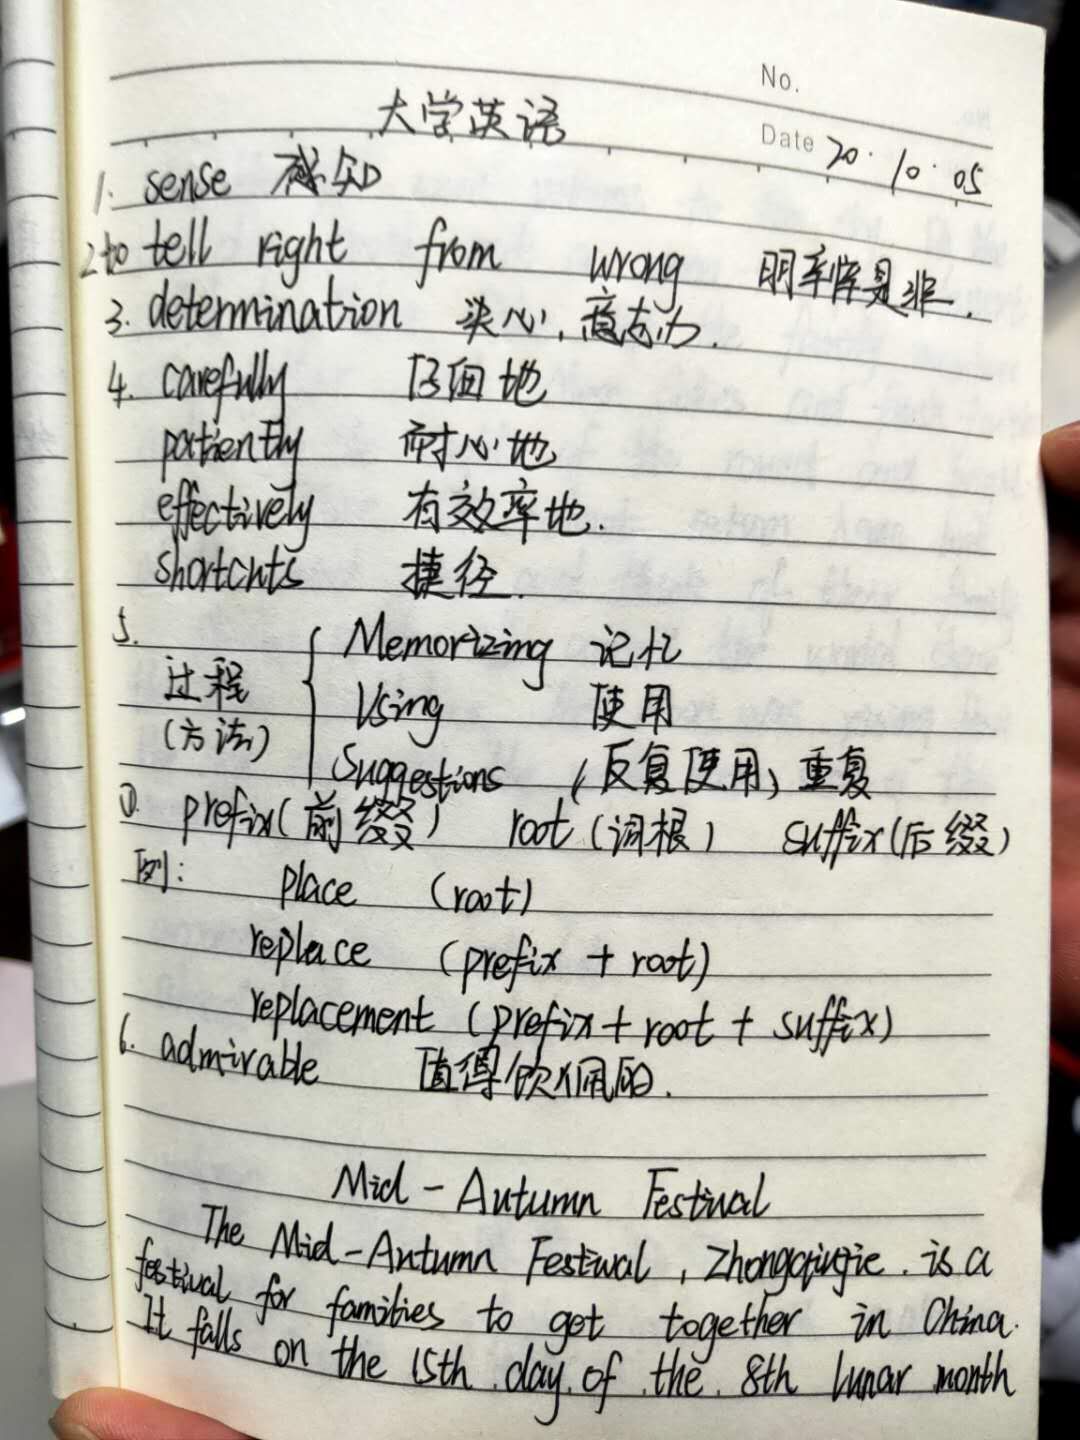 No.
大学英语
Date 20.10.05
1. sense 感知
2. to tell right from wrong 明辨是非.
3. determination 决心, 意志力.
4. carefully 仔细地
patiently 耐心地
effectively 有效率地.
shortcuts 捷径.
5.
过程 Memorizing 记忆
(方法) Using 使用
Suggestions (反复使用) 重复
①. prefix(前缀) root (词根) suffix(后缀)
例: place (root)
replace (prefix + root)
replacement (prefix + root + suffix)
6. admirable 值得钦佩的.
Mid-Autumn Festival
The Mid-Autumn Festival, Zhongqiujie, is a
festival for families to get together in China.
It falls on the 15th day of the 8th lunar month